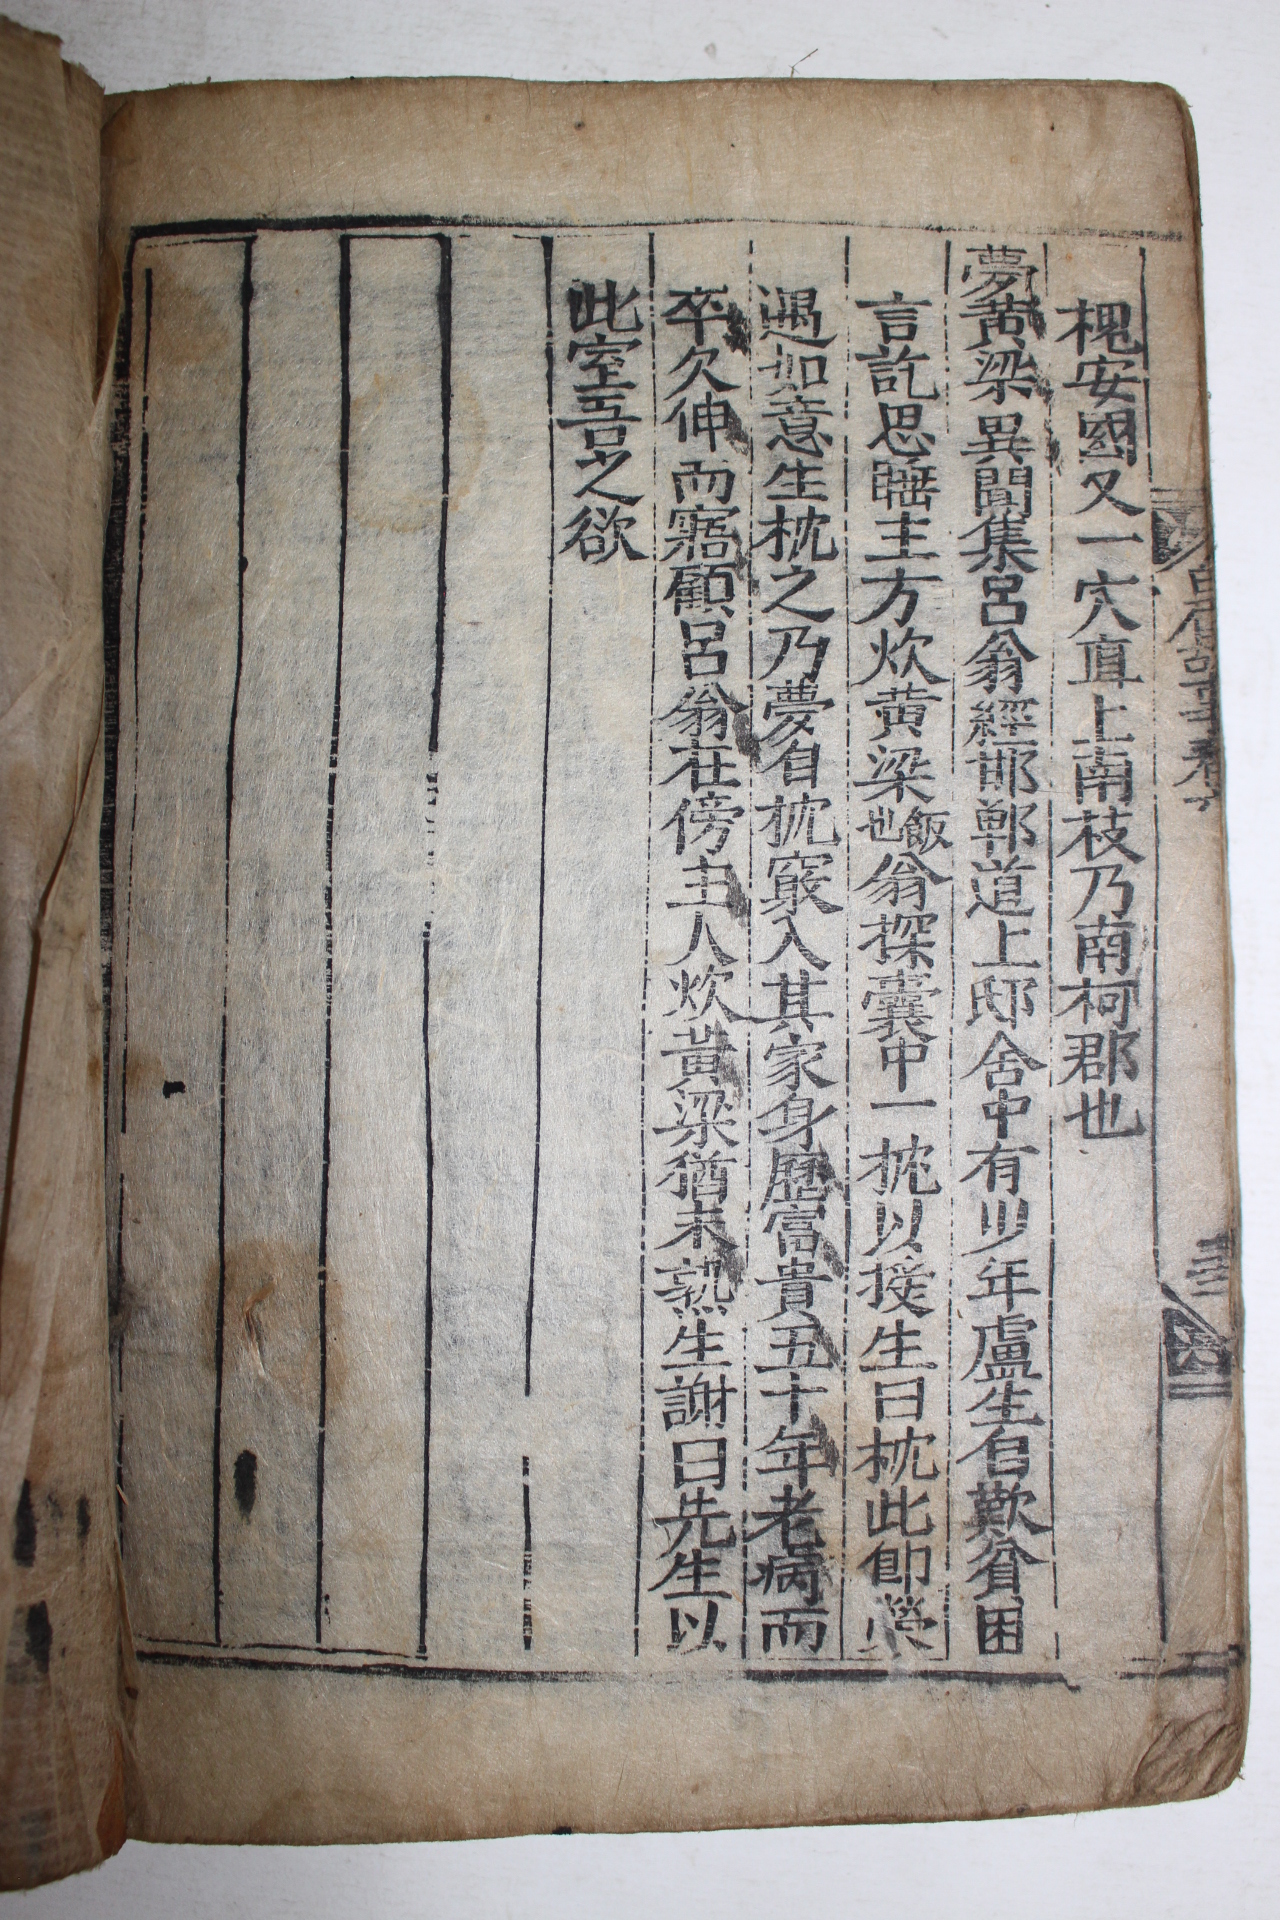 槐安國又一穴直上南枝乃南柯郡也
夢黄梁異聞集呂翁經邯鄲道上邸舎中有少年盧生自歎貧困
言訖思睡主方炊黄梁飯也翁探囊中一枕以授生曰枕此即榮
遇如意生枕之乃夢自枕竅入其家身歷富貴五十年老病而
卒欠伸而寤顧呂翁在傍主人炊黃梁猶未熟生謝曰先生以
此室吾之欲